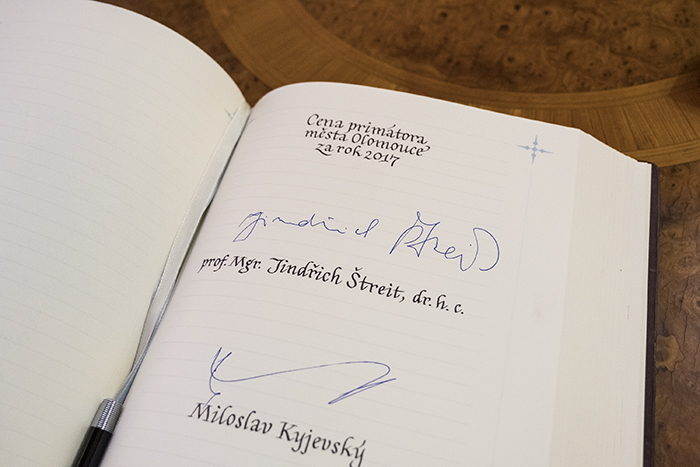 Cena primátora
města Olomouce
za rok 2017
Jindřich Štreit
prof. Mgr. Jindřich Štreit, dr. h. c.
Miloslav Kyjevský